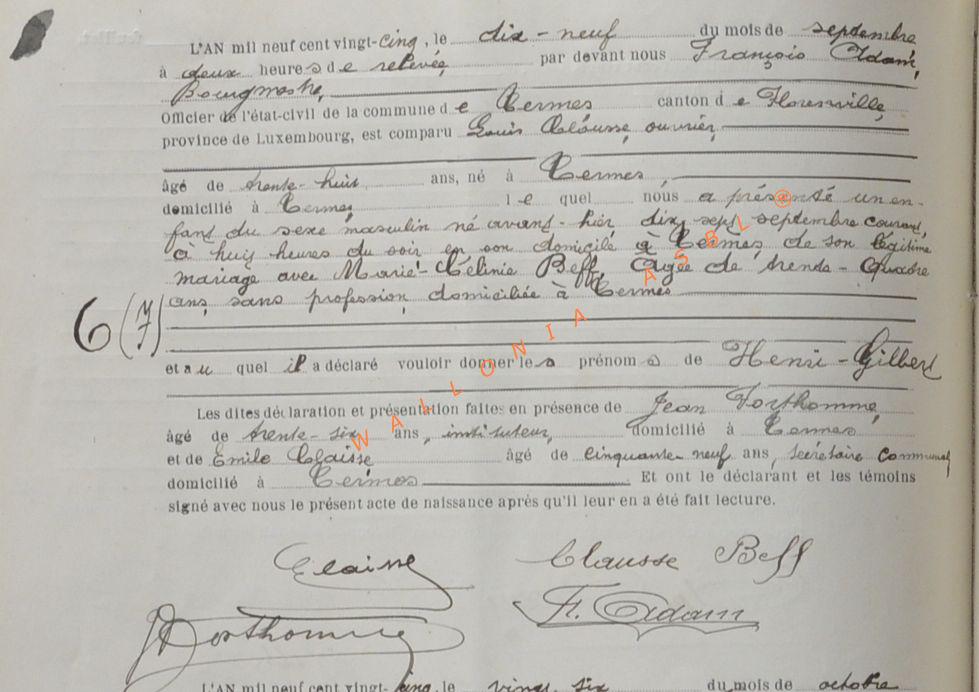 L'AN mil neuf cent vingt-cinq, le dix-neuf du mois de septembre
à deux heures de relevée par devant nous François Adam,
Bourgmestre,
Officier de l'état-civil de la commune de Termes canton de Florenville,
province de Luxembourg, est comparu Louis Clausse, ouvrier,
âgé de trente-huit ans, né à Termes,
domicilié à Termes, lequel nous a présenté un en-
fant du sexe masculin né avant-hier dix sept septembre courant,
à huit heures du soir en son domicile à Termes, de son légitime
mariage avec Marie-Célinie Beff, âgée de trente-quatre
ans, sans profession domiciliée à Termes
6 (7)
et au quel il a déclaré vouloir donner les prénoms de Henri-Gilbert
Les dites déclaration et présentation faites en présence de Jean Dorthomme,
âgé de trente-six ans, instituteur, domicilié à Termes
et de Emile Claisse âgé de cinquante-neuf ans, secrétaire communal
domicilié à Termes Et ont le déclarant et les témoins
signé avec nous le présent acte de naissance après qu'il leur en a été fait lecture.
WALLONIA ASBL @
EClaisse Clausse Beff
JDorthomme F. Adam
L'AN mil neuf cent vingt-cinq, le vingt-six du mois de octobre